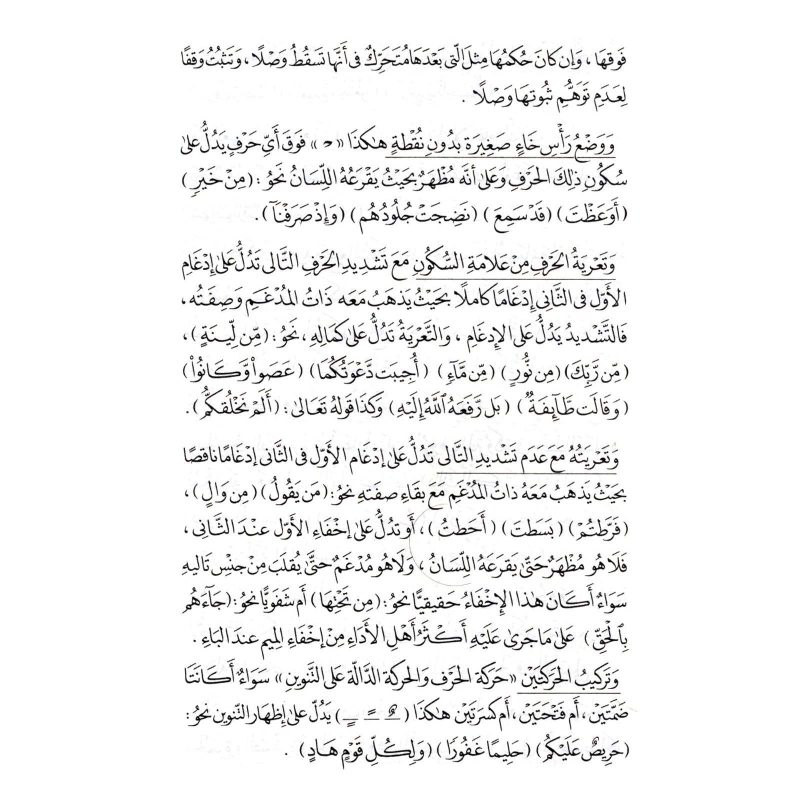 فَوقها ، وَإن كانَ حُكمُهَا مِثلَ الَّتى بَعْدَهَا مُتَحَرِّكٌ فى أَنَّها تَسقُطُ وَصْلًا ، وَتَثبُتُ وَقفًا
لِعَدَمِ تَوَهُّمِ ثُبوتِها وَصْلًا .
وَوَضْعُ رَأْسِ خَاءٍ صَغِيرَة بِدُونِ نُقطَةٍ هٰكذَا « حـ » فَوقَ أَيِّ حَرفٍ يَدُلُّ عَلىٰ
سُكُونِ ذلِكَ الحَرْفِ وَعَلىٰ أنَّه مُظْهَرٌ بحَيثُ يَقْرَعُهُ اللِّسَانُ نَحوُ : (مِنْ خَيْرٍ)
(أَوَعَظْتَ) (قَدْ سَمِعَ) (نَضِجَتْ جُلُودُهُم) (وَإِذْ صَرَفْنَآ).
وَتَعْرِيَةُ الحَرْفِ مِنْ عَلامَةِ السُّكُونِ مَعَ تَشْدِيدِ الحَرْفِ التَّالى تَدُلُّ عَلىٰ إدْغَامِ
الأوَّل فى الثَّانِى إِدْغَامًا كاملًا بحَيْثُ يَذهَبُ مَعَه ذَاتُ المُدْغَمِ وَصِفَتُه ،
فَالتَّشْدِيدُ يَدُلُّ عَلى الإدغَامِ ، وَالتَّعْرِيَةُ تَدُلُّ عَلىٰ كمَالِهِ ، نَحوُ : (مِّن لِّينَةٍ) ،
(مِّن رَّبِّكَ) (مِن نُّورٍ) (مِّن مَّآءٍ) (أُجِيبَت دَّعْوَتُكُمَا) (عَصَواْ وَّكَانُواْ)
(وَقَالَت طَّآئِفَةٌ) (بَل رَّفَعَهُ ٱللَّهُ إِلَيْهِ) وَكَذَا قَولُهُ تَعَالىٰ : (أَلَمْ نَخْلُقكُّم).
وَتَعْرِيَتُهُ مَعَ عَدَمِ تَشْدِيدِ التَّالى تَدُلُّ عَلىٰ إدْغَامِ الأوَّل فى الثَّانى إدْغَامًا نَاقصًا
بحَيْثُ يَذهَبُ مَعَهُ ذَاتُ المُدْغَمِ مَعَ بَقَاءِ صِفَتِهِ نحوُ : (مَن يَقُولُ) (مِن وَالٍ) ،
(فَرَّطتُمْ) (بَسَطتَ) (أَحَطتُ) ، أَو تدُلُّ عَلىٰ إخْفَاءِ الأوَّل عندَ الثَّانى ،
فَلَا هُو مُظْهَرٌ حَتىٰ يَقْرَعَهُ اللِّسَانُ ، وَلَا هُو مُدْغَمٌ حَتىٰ يُقْلَبَ مِنْ جنْسِ تَاليهِ
سَوَاءٌ أَكَانَ هٰذَا الإِخْفَاءُ حَقيقِيًّا نحوُ : (مِن تَحْتِهَا) أَم شَفَوِيًّا نحوُ : (جَآءَهُم
بِٱلْحَقِّ) عَلىٰ مَا جَرىٰ عَلَيْهِ أَكْثَرُ أَهْلِ الأَدَاءِ مِنْ إخْفَاءِ المِيم عندَ البَاءِ .
وَتَركيبُ الحَرَكَتَيْن «حَرَكَة الحَرْف والحركة الدَّالَّة عَلى التَّنوِين» سَوَاءٌ أَكَانَتَا
ضَمَّتَيْن ، أَم فَتْحَتَيْن ، أَم كَسرَتَين هٰكذَا (ـٌـ ـًـ ـٍـ) يَدُلّ عَلىٰ إِظهَار التَّنوين نحوُ :
(حَرِيصٌ عَلَيْكُم) (حَلِيمًا غَفُورًا) (وَلِكُلِّ قَوْمٍ هَادٍ) .